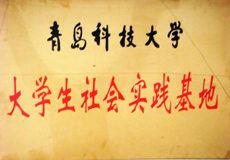 青岛科技大学
大学生社会实践基地